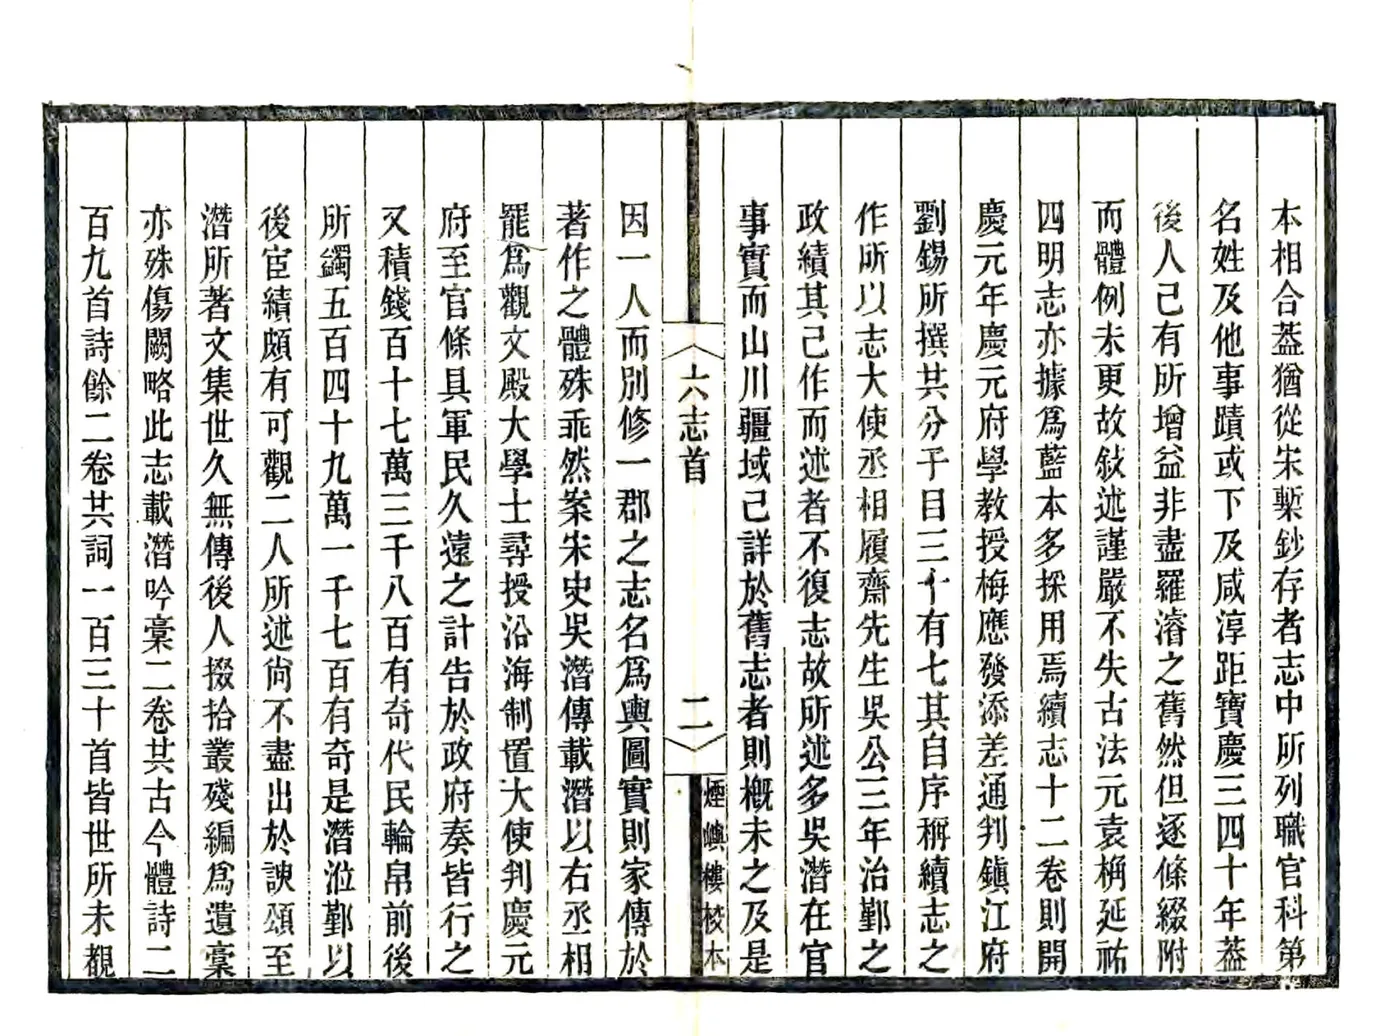 本相合葢猶從宋槧鈔存者志中所列職官科第
名姓及他事蹟或下及咸淳距寶慶三四十年葢
後人己有所增益非盡羅濬之舊然但逐條綴附
而體例未更故敍述謹嚴不失古法元袁桷延祐
四明志亦據爲藍本多採用焉續志十二卷則開
慶元年慶元府學教授梅應發添差通判鎮江府
劉錫所撰其分子目三十有七其自序稱續志之
作所以志大使丞相履齋先生吳公三年治鄞之
政績其己作而述者不復志故所述多吳潛在官
事實而山川疆域己詳於舊志者則槪未之及是
六志首
二
煙嶼樓校本
因一人而別修一郡之志名爲輿圖實則家傳於
著作之體殊乖然案宋史吳潛傳載潛以右丞相
罷爲觀文殿大學士尋授沿海制置大使判慶元
府至官條具軍民久遠之計告於政府奏皆行之
又積錢百十七萬三千八百有奇代民輪帛前後
所蠲五百四十九萬一千七百有奇是潛涖鄞以
後宦績頗有可觀二人所述尙不盡出於諛頌至
潛所著文集世久無傳後人掇拾叢殘編爲遺稾
亦殊傷闕略此志載潛吟稾二卷共古今體詩二
百九首詩餘二卷共詞一百三十首皆世所未覩